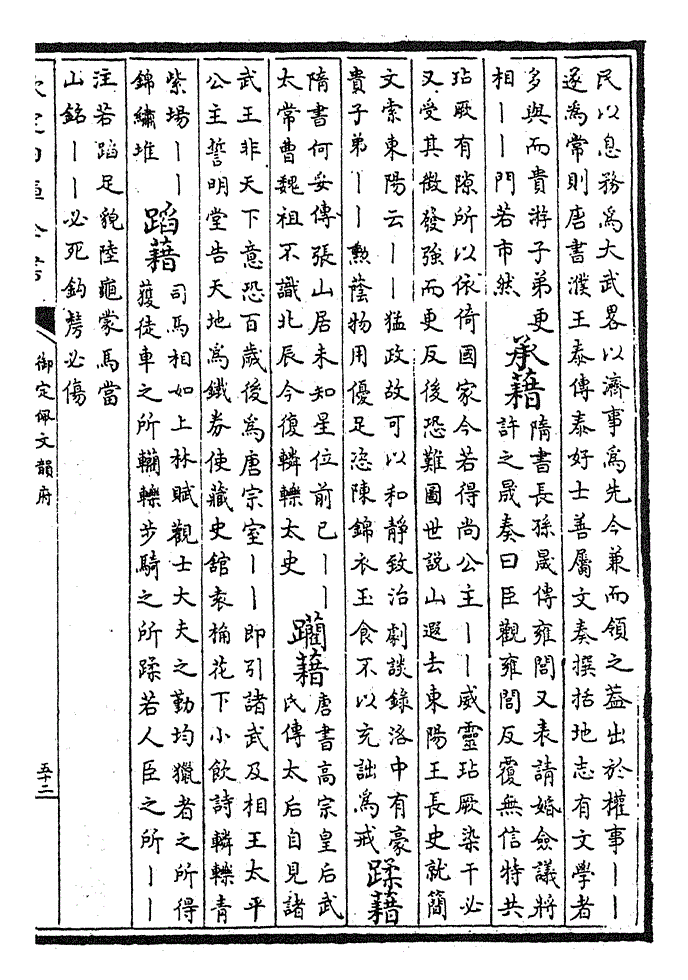 民以息務爲大武畧以濟事爲先今兼而領之葢出於權事丨丨
遂為常則唐書濮王泰傳泰好士善屬文奏撰括地志有文學者
多與而貴游子弟更
相丨丨門若市然
承藉
隋書長孫晟傳雍閭又表請婚僉議將
許之晟奏曰臣觀雍閭反覆無信特共
玷厥有隙所以依倚國家今若得尚公主丨丨威靈玷厥染干必
又受其徵發強而更反後恐難圖世説山遐去東陽王長史就簡
文索東陽云丨丨猛政故可以和靜致治劇談錄洛中有豪
貴子弟丨丨勲蔭物用優足恣陳錦衣玉食不以充詘爲戒
蹂藉
隋書何妥傳張山居未知星位前已丨丨
太常曹魏祖不識北辰今復轔轢太史
躪藉
唐書高宗皇后武
氏傳太后自見諸
武王非天下意恐百歲後爲唐宗室丨丨即引諸武及相王太平
公主誓明堂告天地爲鐵券使藏史舘袁桷花下小飲詩轔轢青
紫場丨丨
錦繡堆
蹈藉
司馬相如上林賦觀士大夫之勤均獵者之所得
獲徒車之所轥轢步騎之所蹂若人臣之所丨丨
注若蹈足貌陸龜蒙馬當
山銘丨丨必死鈎必傷
欽定四庫全書
御定佩文韻府
五十二